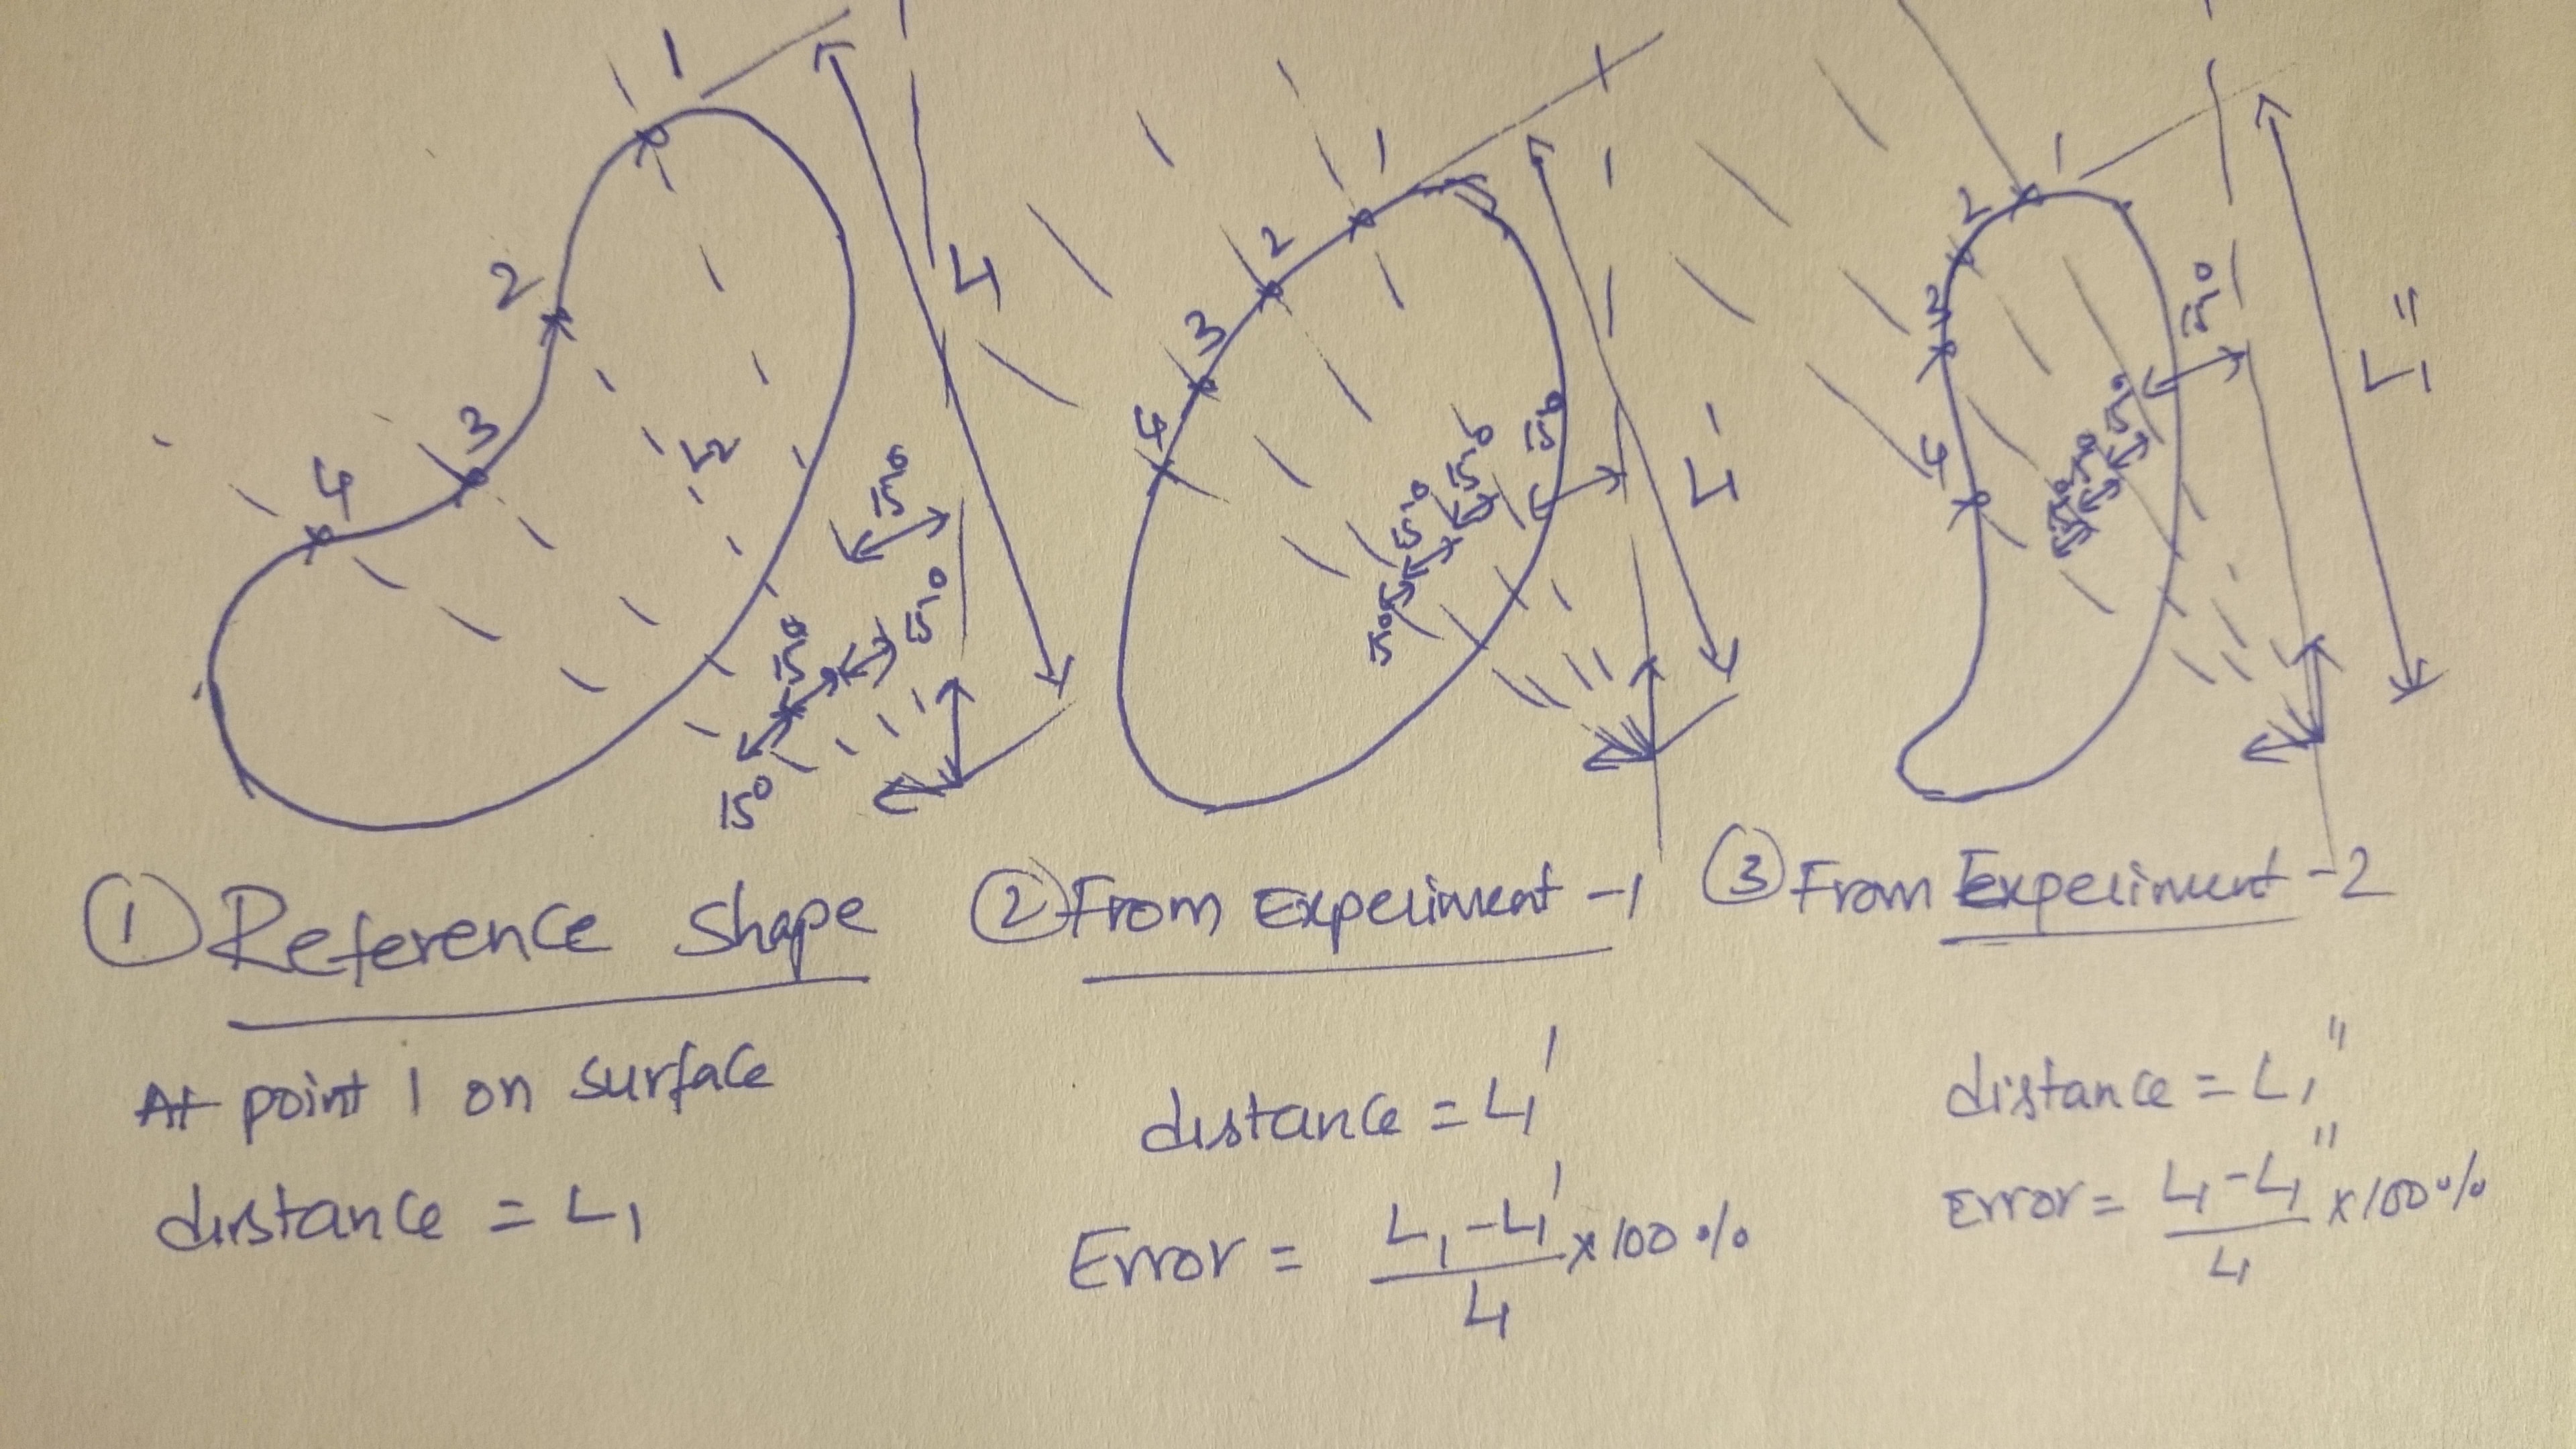 1
2
3
4
L1
L2
15°
15°
15°
15°
1
2
3
4
L1'
15°
15°
15°
15°
1
2
3
4
L1"
15°
15°
15°
① Reference shape
② From Experiment -1
③ From Experiment -2
At point 1 on surface
distance = L1
distance = L1'
Error = L1-L1' / L1 x 100 %
distance = L1"
Error = L1-L1" / L1 x 100 %